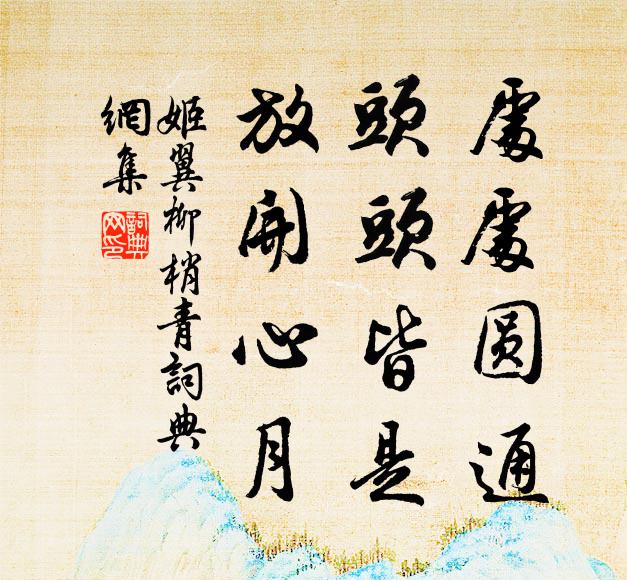 處處圓通
頭頭皆是
放開心月
姬翼柳梢青詞典
網集
詞典網印